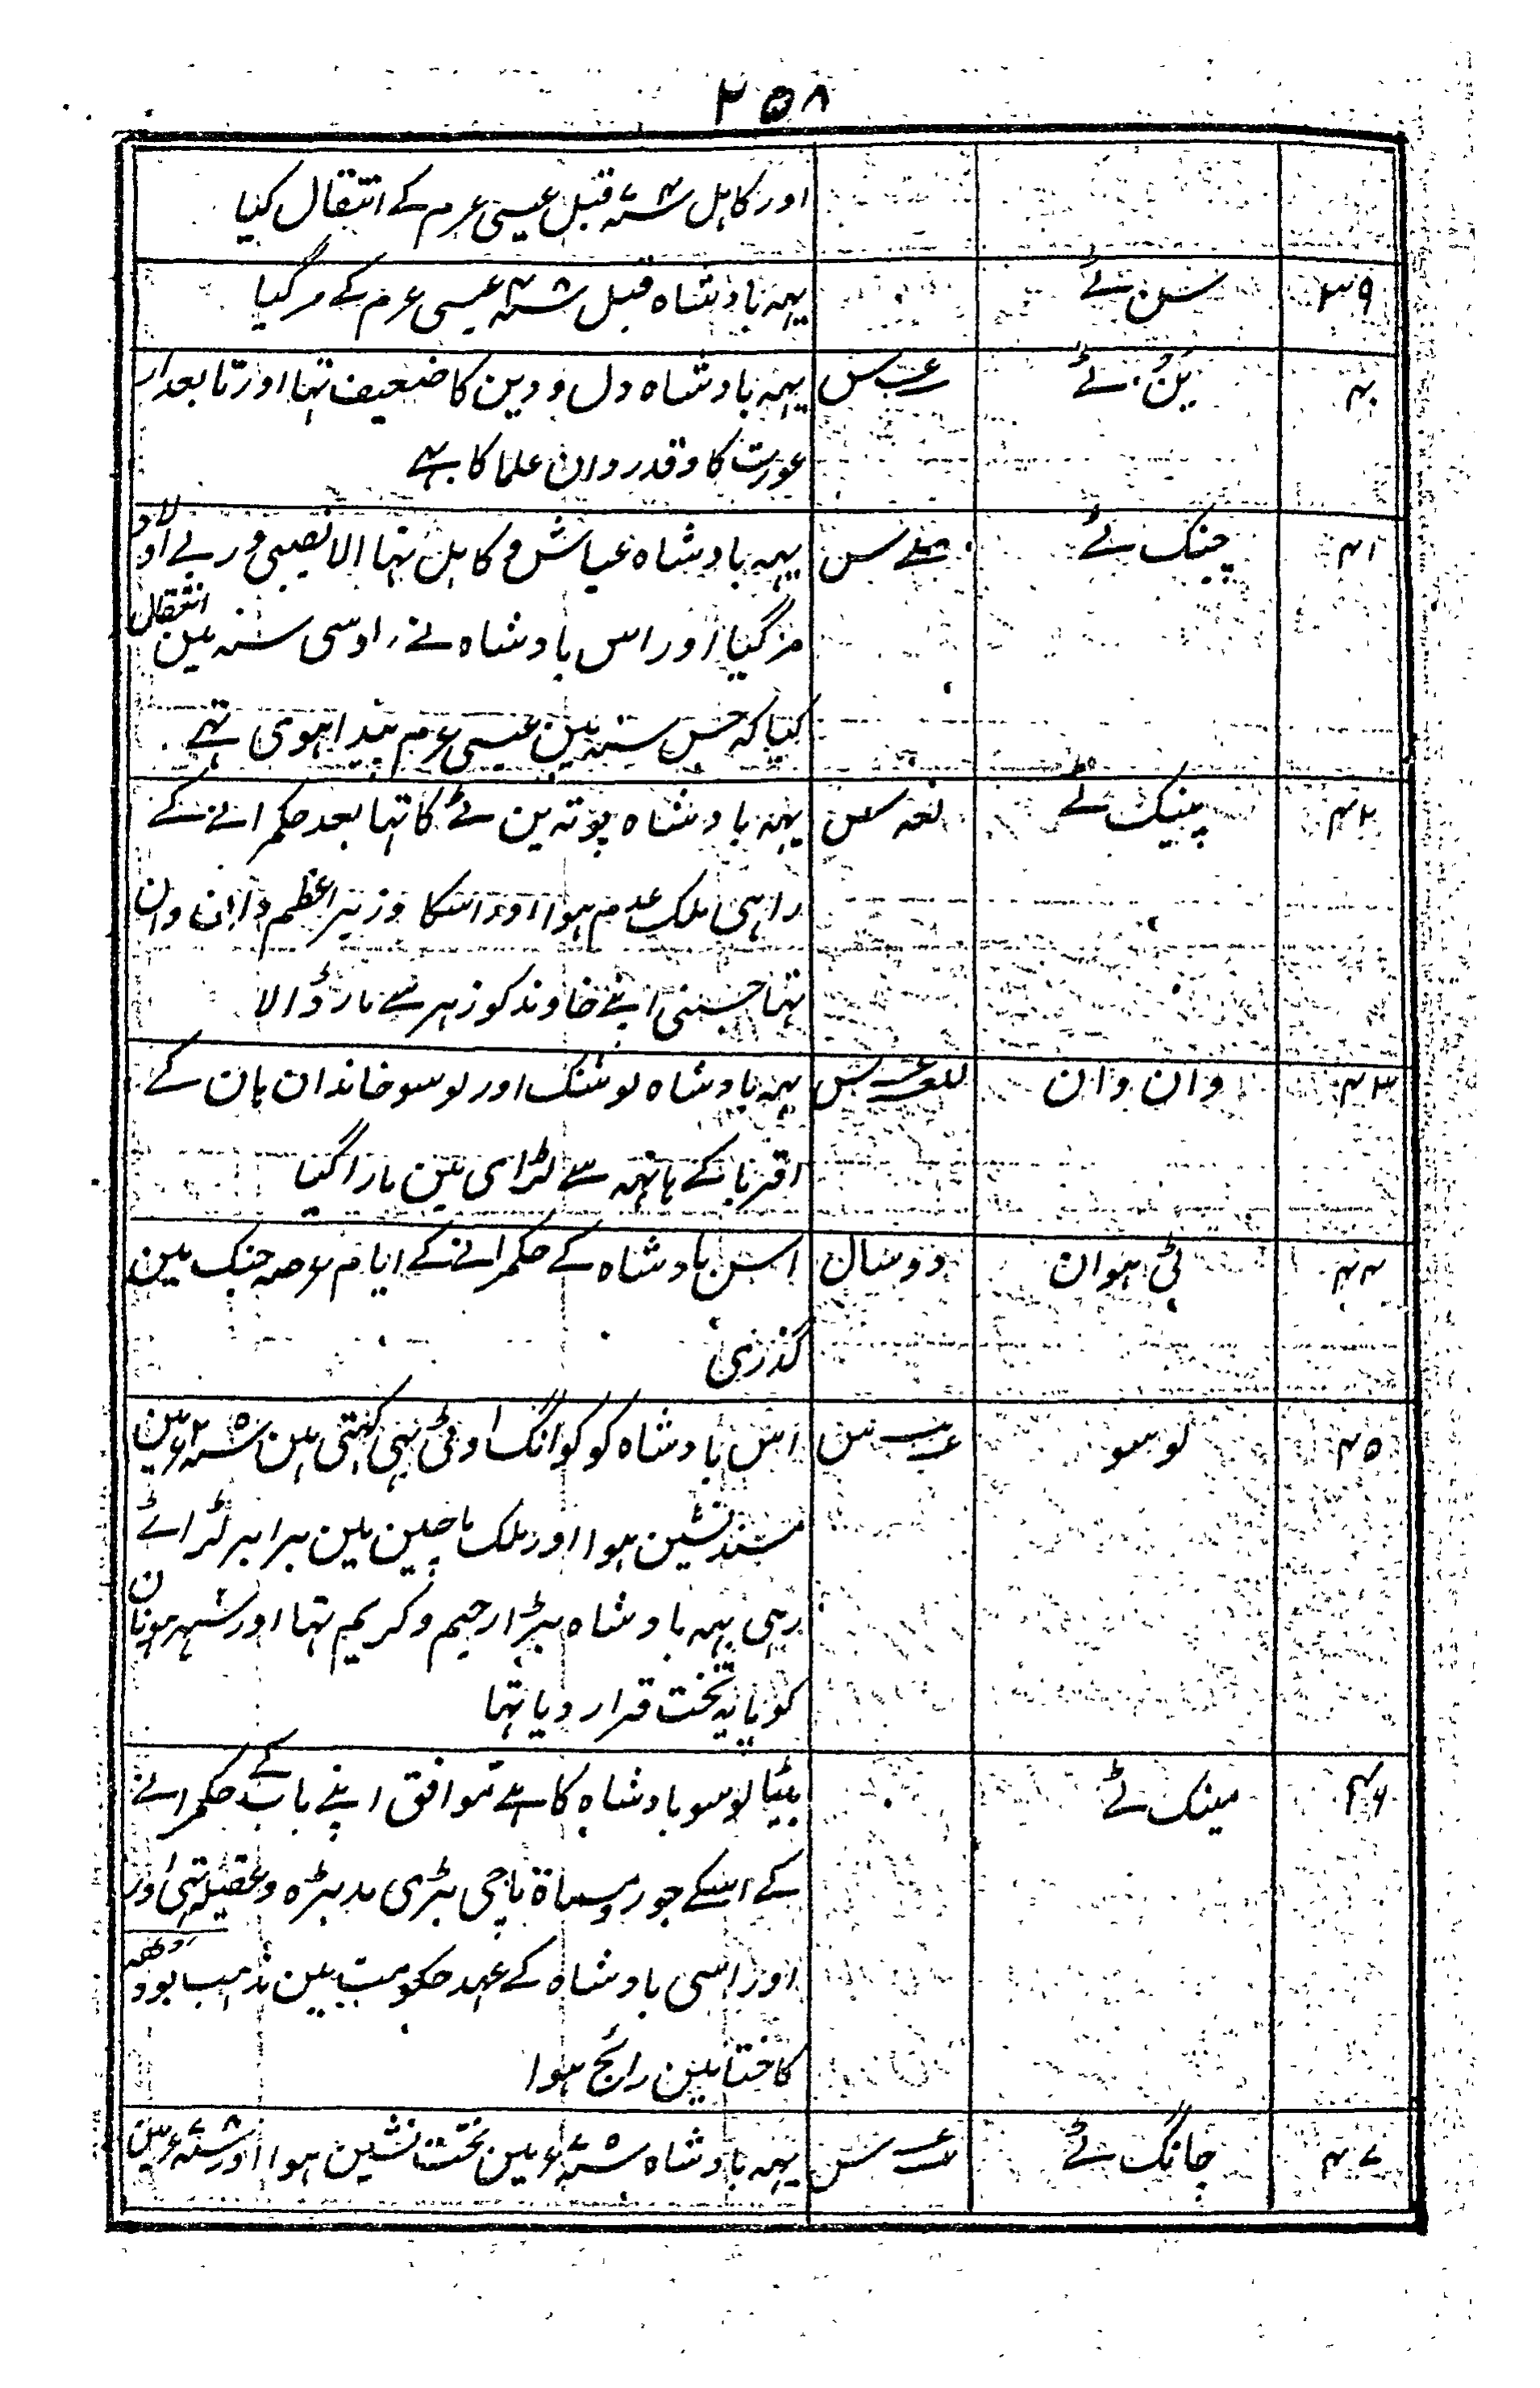 ۲۵۸
اور کاہل سنہ قبل عیسی عرم کے انتقال کیا
۳۹ سن ٹے یہہ بادشاہ قبل سنہ عیسی عرم کے مر گیا
۴۰ ین ٹے یہہ بادشاہ دل و دین کا ضعیف تہا اور تابعدار
عورت کا و قدردان علما کا ہے
۴۱ چنک ٹے یہہ بادشاہ عیاش و کاہل تہا الا نصیبی ور بے اولاد
مر گیا اور اس بادشاہ نے اوسی سنہ مین انتقال
کیا کہ جس سنہ مین عیسی عرم پیدا ہوی تہے
۴۲ پینک ٹے یہہ بادشاہ پوتہ ین ٹے کا تہا بعد حکمرانے کے
راہی ملک عدم ہوا اور اسکا وزیر اعظم وان وان
تہا جسنی اپنے خاوند کو زہر سے مار ڈالا
۴۳ وان وان یہہ بادشاہ لوشنک اور لوسو خاندان ہان کے
اقربا کے ہاتہہ سے لڑای مین مارا گیا
۴۴ ٹی ہوان دو سال اس بادشاہ کے حکمرانے کے ایام عرصہ جنک مین
گذری
۴۵ لوسو اس بادشاہ کو کوانگ او ٹی بہی کہتی ہین سنہ ۲۵ء مین
مسند نشین ہوا اور ملک ماچین مین برابر لڑائے
رہی یہہ بادشاہ بڑا رحیم و کریم تہا اور شہر ہونان
کو پایہ تخت قرار دیا تہا
۴۶ مینک ٹے بیٹا لوسو بادشاہ کا ہے موافق اپنے باپ کے حکمرانے
کے اسکے جورو مسماۃ پاچی بڑی مدبرہ و عقیلہ تہی اور
اور اسی بادشاہ کے عہد حکومت مین مذہب بودھہ
کا ختا مین رائج ہوا
۴۷ چانگ ٹے یہہ بادشاہ سنہ ۷۵ء مین تخت نشین ہوا اور سنہ ۸۷ء مین